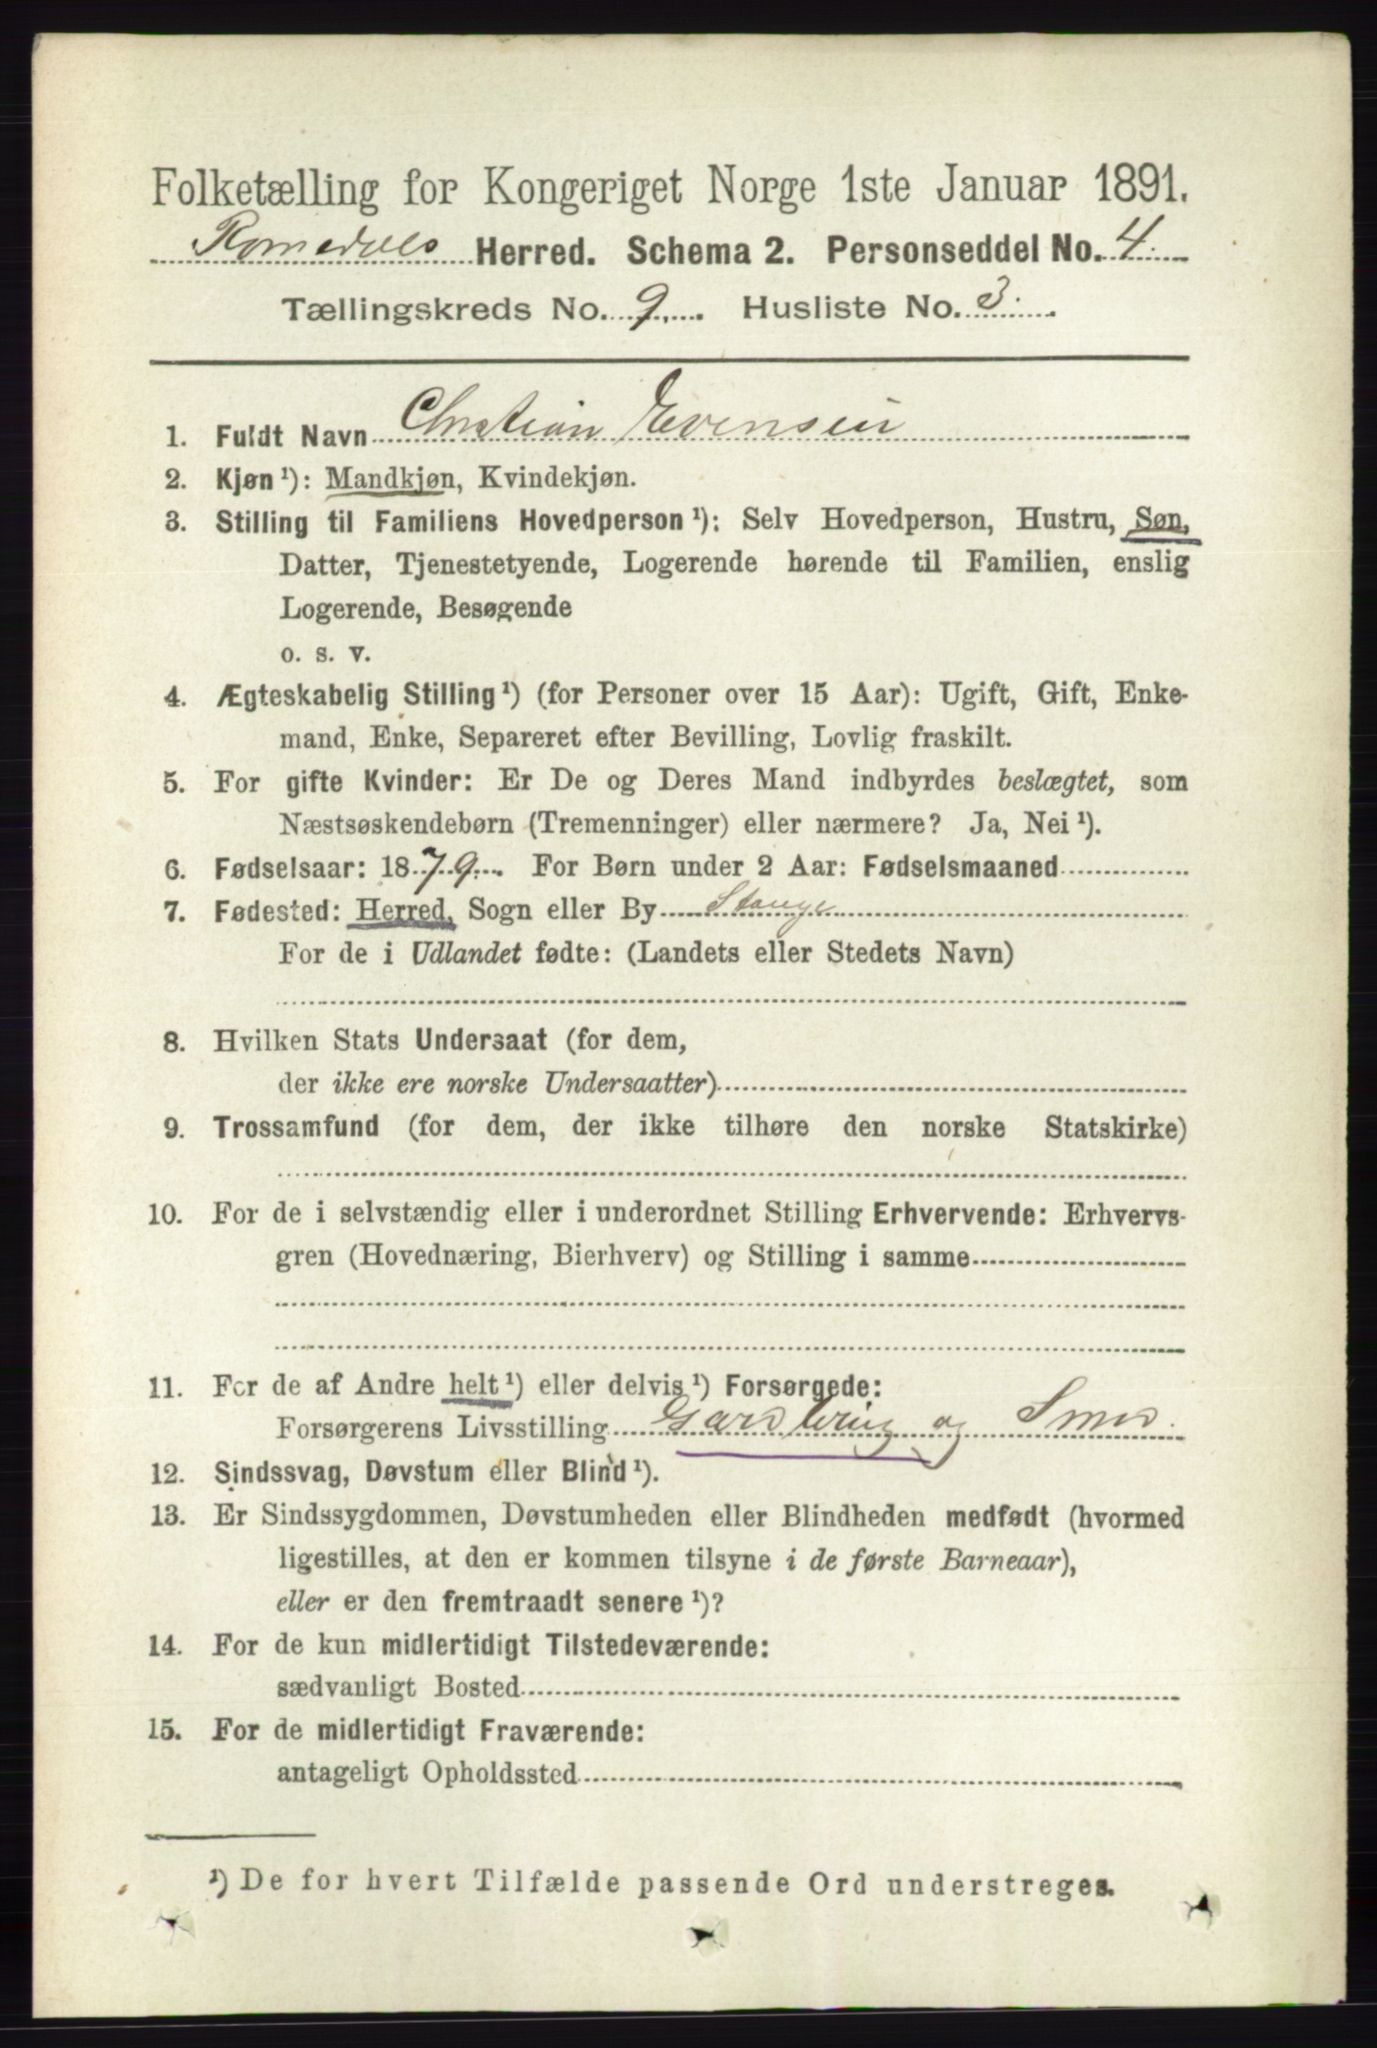 Folketælling for Kongeriget Norge 1ste Januar 1891.
Romedals Herred. Schema 2. Personseddel No. 4.
Tællingskreds No. 9. Husliste No. 3.
1. Fuldt Navn Christian Evensen
2. Kjøn ¹): Mandkjøn, Kvindekjøn.
3. Stilling til Familiens Hovedperson ¹): Selv Hovedperson, Hustru, Søn,
Datter, Tjenestetyende, Logerende hørende til Familien, enslig
Logerende, Besøgende
o. s. v.
4. Ægteskabelig Stilling ¹) (for Personer over 15 Aar): Ugift, Gift, Enke-
mand, Enke, Separeret efter Bevilling, Lovlig fraskilt.
5. For gifte Kvinder: Er De og Deres Mand indbyrdes beslægtet, som
Næstsøskendebørn (Tremenninger) eller nærmere? Ja, Nei ¹).
6. Fødselsaar: 1879. For Børn under 2 Aar: Fødselsmaaned
7. Fødested: Herred, Sogn eller By Stange
For de i Udlandet fødte: (Landets eller Stedets Navn)
8. Hvilken Stats Undersaat (for dem,
der ikke ere norske Undersaatter)
9. Trossamfund (for dem, der ikke tilhøre den norske Statskirke)
10. For de i selvstændig eller i underordnet Stilling Erhvervende: Erhvervs-
gren (Hovednæring, Bierhverv) og Stilling i samme
11. For de af Andre helt ¹) eller delvis ¹) Forsørgede:
Forsørgerens Livsstilling Gardbrug og Smed.
12. Sindssvag, Døvstum eller Blind ¹).
13. Er Sindssygdommen, Døvstumheden eller Blindheden medfødt (hvormed
ligestilles, at den er kommen tilsyne i de første Barneaar),
eller er den fremtraadt senere ¹)?
14. For de kun midlertidigt Tilstedeværende:
sædvanligt Bosted
15. For de midlertidigt Fraværende:
antageligt Opholdssted
¹) De for hvert Tilfælde passende Ord understreges.